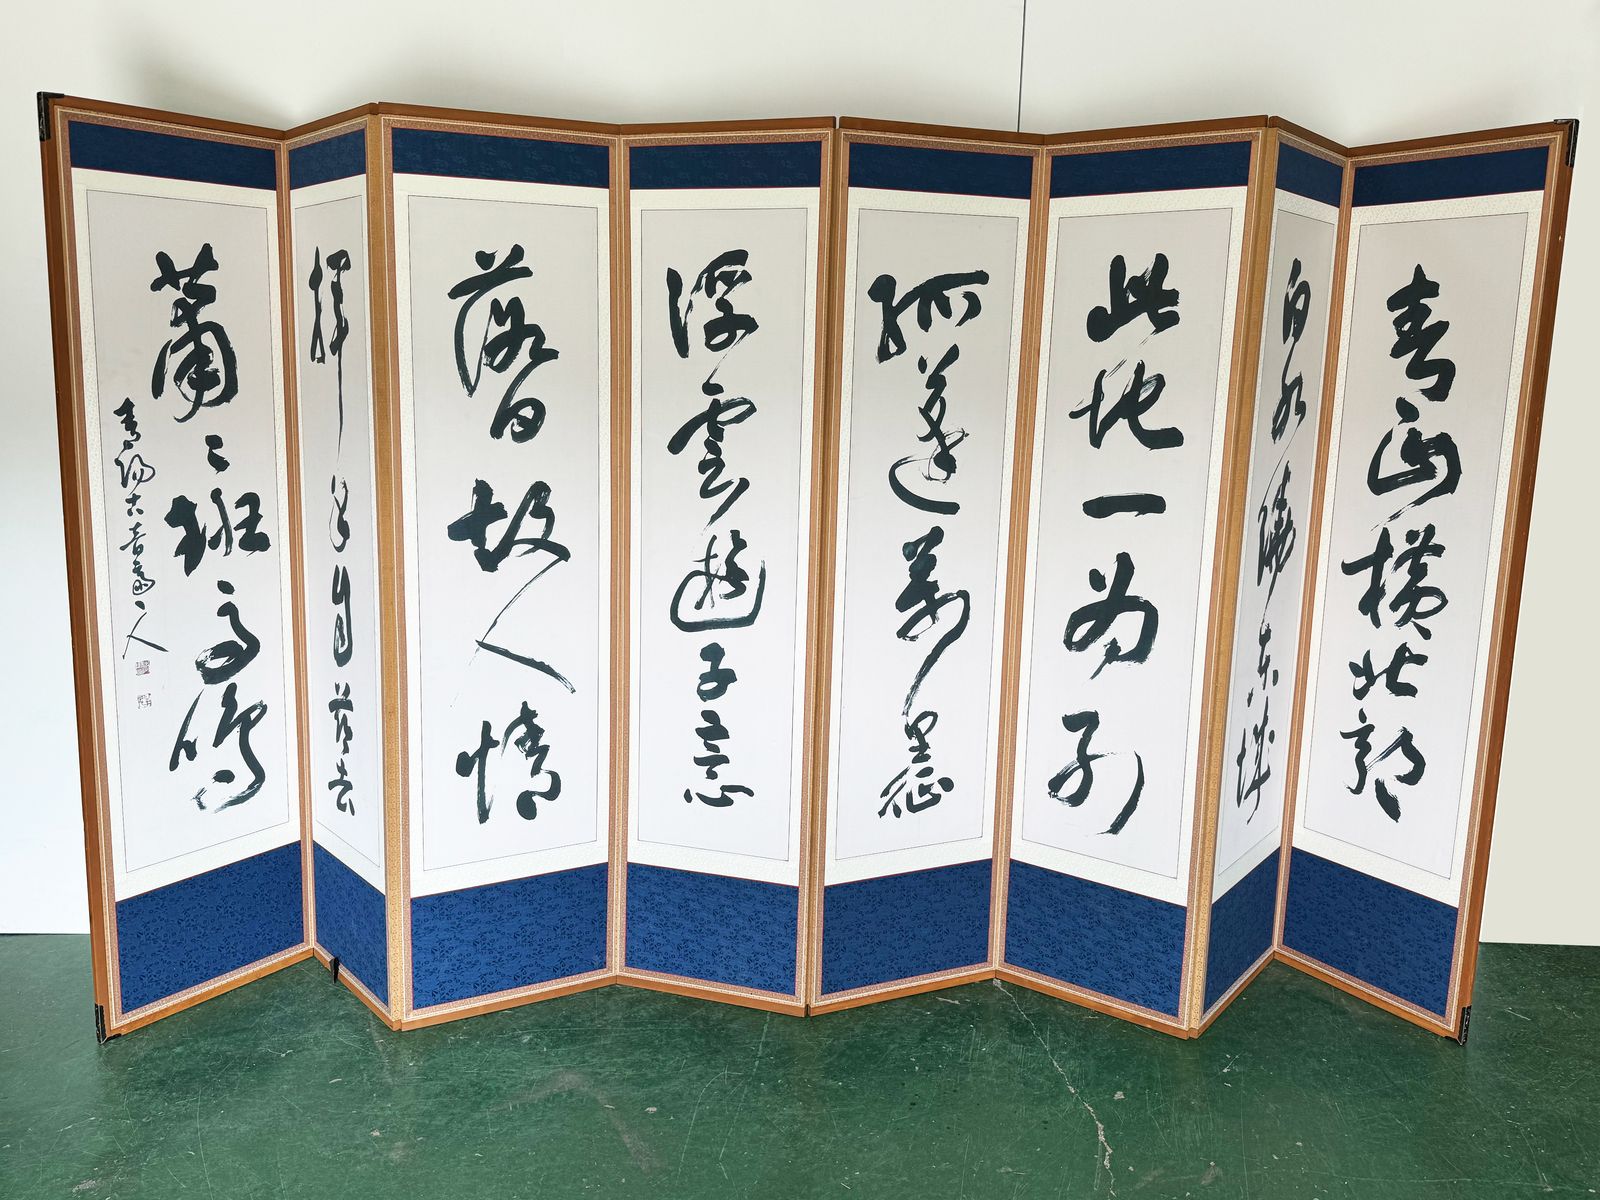 青山橫北郭
白水繞東城
此地一為別
孤蓬萬里征
浮雲遊子意
落日故人情
揮手自茲去
蕭〻班馬鳴
青陽